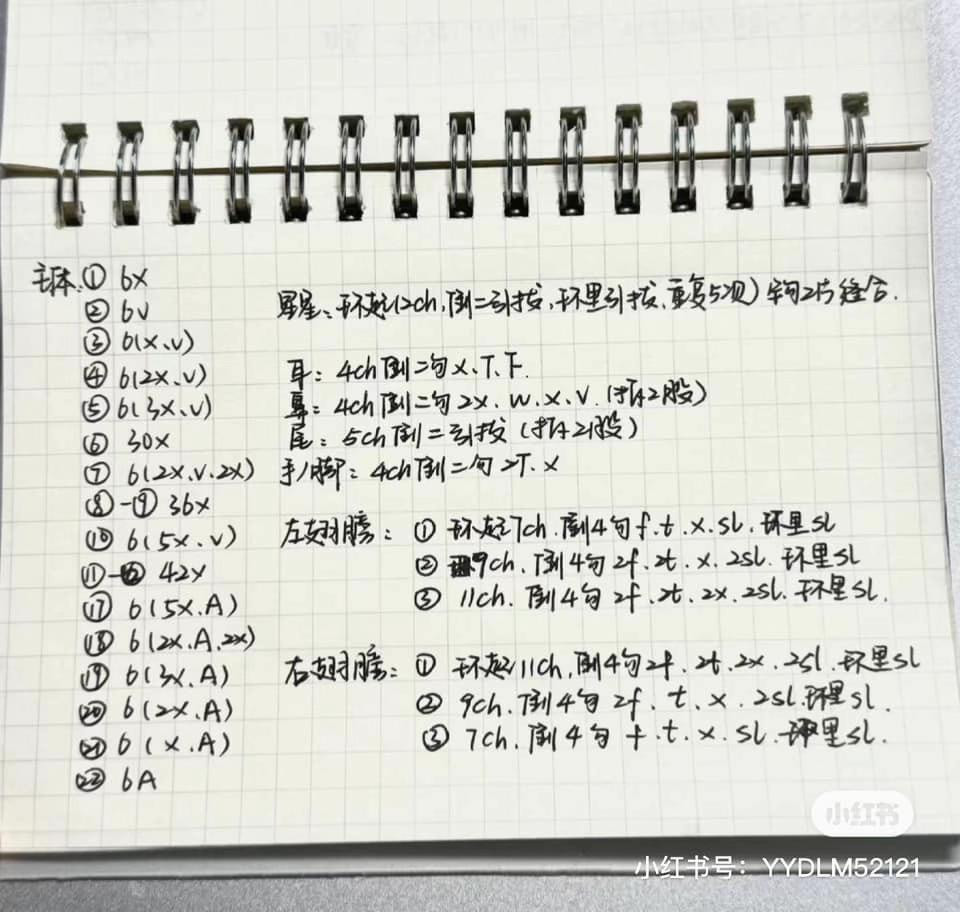 主体: ① 6X
② 6V
③ 6(X、V)
④ 6(2X、V)
⑤ 6(3X、V)
⑥ 30X
⑦ 6(2X、V、2X)
⑧-⑨ 36X
⑩ 6(5X、V)
⑪-⑯ 42X
⑰ 6(5X、A)
⑱ 6(2X、A、2X)
⑲ 6(3X、A)
⑳ 6(2X、A)
㉑ 6(X、A)
㉒ 6A
星星: 环起(2ch,倒二引拔,环里引拔,重复5次) 钩2片缝合.
耳: 4ch倒二勾X、T、F.
鼻: 4ch倒二勾2X、W、X、V.(拆2股)
尾: 5ch倒二引拔(拆2股)
手/脚: 4ch倒二勾2T、X
左翅膀: ① 环起7ch.倒4勾f.t.x.sl.环里sl
② 9ch.倒4勾2f.2t.x.2sl.环里sl
③ 11ch.倒4勾2f.2t.2x.2sl.环里sl.
右翅膀: ① 环起11ch,倒4勾2f.2t.2x.2sl.环里sl
② 9ch.倒4勾2f.t.x.2sl.环里sl.
③ 7ch.倒4勾f.t.x.sl.环里sl.
小红书
小红书号: YYDLM52121